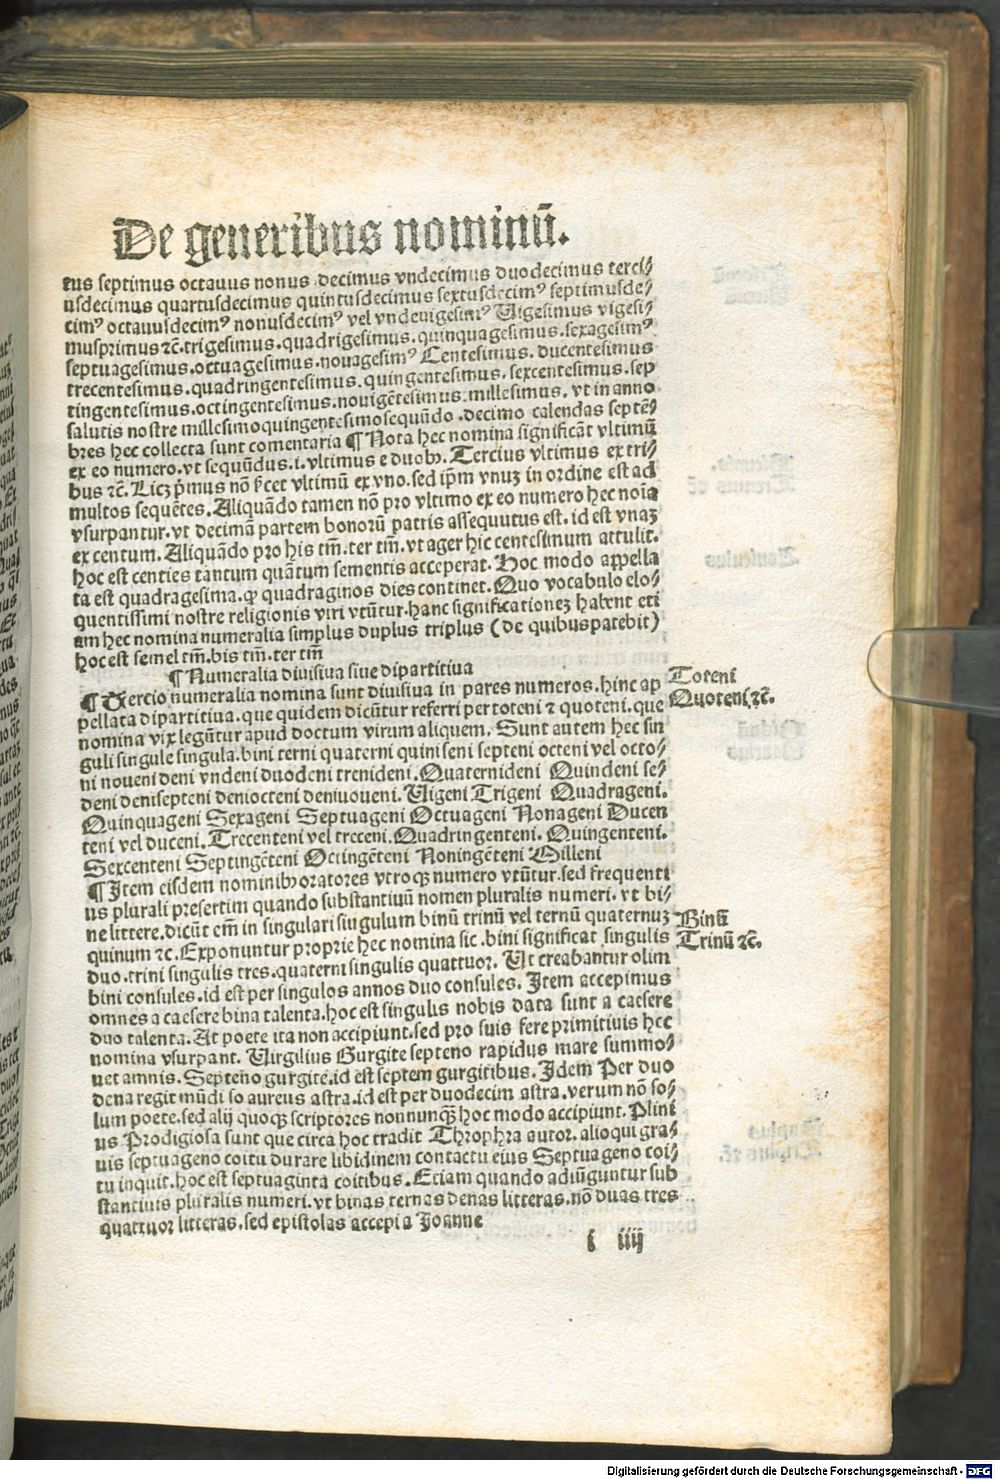 De generibus nominū.
tus septimus octauus nonus decimus vndecimus duodecimus terci⸗
usdecimus quartusdecimus quintusdecimus sextusdecimꝰ septimusde⸗
cimꝰ octauusdecimꝰ nonusdecimꝰ vel vndeuigesimꝰ Uigesimus vigesi⸗
musprimus ⁊c̄.trigesimus.quadrigesimus.quinquagesimus.sexagesimꝰ
septuagesimus.octuagesimus.nouagesimꝰ Centesimus.ducentesimus
trecentesimus.quadringentesimus.quingentesimus.sexcentesimus.sep
tingentesimus.octingentesimus.nouigētesimus.millesimus.vt in anno
salutis nostre millesimoquingentesimosequūdo.decimo calendas septē⸗
bres hec collecta sunt comentaria ¶ Nota hec nomina significāt vltimū
ex eo numero.vt sequūdus.i.vltimus e duobꝫ.Tercius vltimus ex tri⸗
bus ⁊c̄.Licꝫ p̄mus nō
multos sequētes.Aliquādo tamen nō pro vltimo ex eo numero hec noīa
vsurpantur.vt decimā partem bonorū patris assequutus est.id est vnaꝫ
ex centum.Aliquādo pro his tm̄.ter tm̄.vt ager hic centesimum attulit.
hoc est centies tantum quātum sementis acceperat.Hoc modo appella
ta est quadragesima.ꝙ quadraginos dies continet.Quo vocabulo elo⸗
quentissimi nostre religionis viri vtūtur.hanc significationeꝫ habent eti
am hec nomina numeralia simplus duplus triplus (de quibuspatebit)
hoc est semel tm̄.bis tm̄.ter tm̄
¶ Numeralia diuisiua siue dipartitiua
¶ Tercio numeralia nomina sunt diuisiua in pares numeros.hinc ap
pellata dipartitiua.que quidem dicūtur referri per toteni ⁊ quoteni.que
Toteni
Quoteni.⁊c̄.
nomina vix legūtur apud doctum virum aliquem.Sunt autem hec sin
guli singule singula.bini terni quaterni quini seni septeni octeni vel octo⸗
ni noueni deni vndeni duodeni trenideni.Quaternideni Quindeni se⸗
deni denisepteni deniocteni deniuoueni.Uigeni Trigeni Quadrageni.
Quinquageni Sexageni Septuageni Octuageni Nonageni Ducen
teni vel duceni.Trecenteni vel treceni.Quadringenteni.Quingenteni.
Sexcenteni Septingēteni Octingēteni Noningēteni Milleni
¶ Item eisdem nominibꝫ oratores vtroqꝫ numero vtūtur.sed frequenti
us plurali presertim quando substantiuū nomen pluralis numeri.vt bi⸗
ne littere.dicūt em̄ in singulari siugulum binū trinū vel ternū quaternuꝫ
quinum ⁊c.Exponuntur proprie hec nomina sic.bini significat singulis
Binū
Trinū ⁊c̄.
duo.trini singulis tres.quaterni singulis quattuor.Ut creabantur olim
bini consules.id est per singulos annos duo consules.Item accepimus
omnes a caesere bina talenta.hoc est singulis nobis data sunt a caesere
duo talenta.At poete ita non accipiunt.sed pro suis fere primitiuis hec
nomina vsurpant.Uirgilius Gurgite septeno rapidus mare summo⸗
uet amnis.Septeno gurgite.id est septem gurgitibus.Idem Per duo
dena regit mūdi so aureus astra.id est per duodecim astra.verum nō so⸗
lum poete.sed alij quoqꝫ scriptores nonnunqꝫ hoc modo accipiunt.Plini
us Prodigiosa sunt que circa hoc tradit Throphra autor.alioqui gra⸗
uis septuageno coitu durare libidinem contactu eius Septuageno coi⸗
tu inquit.hoc est septuaginta coitibus.Etiam quando adiūguntur sub
stantiuis pluralis numeri.vt binas ternas denas litteras.nō duas tres
quattuor litteras.sed epistolas accepi a Joanne
iiij
Digitalisierung gefördert durch die Deutsche Forschungsgemeinschaft - DFG